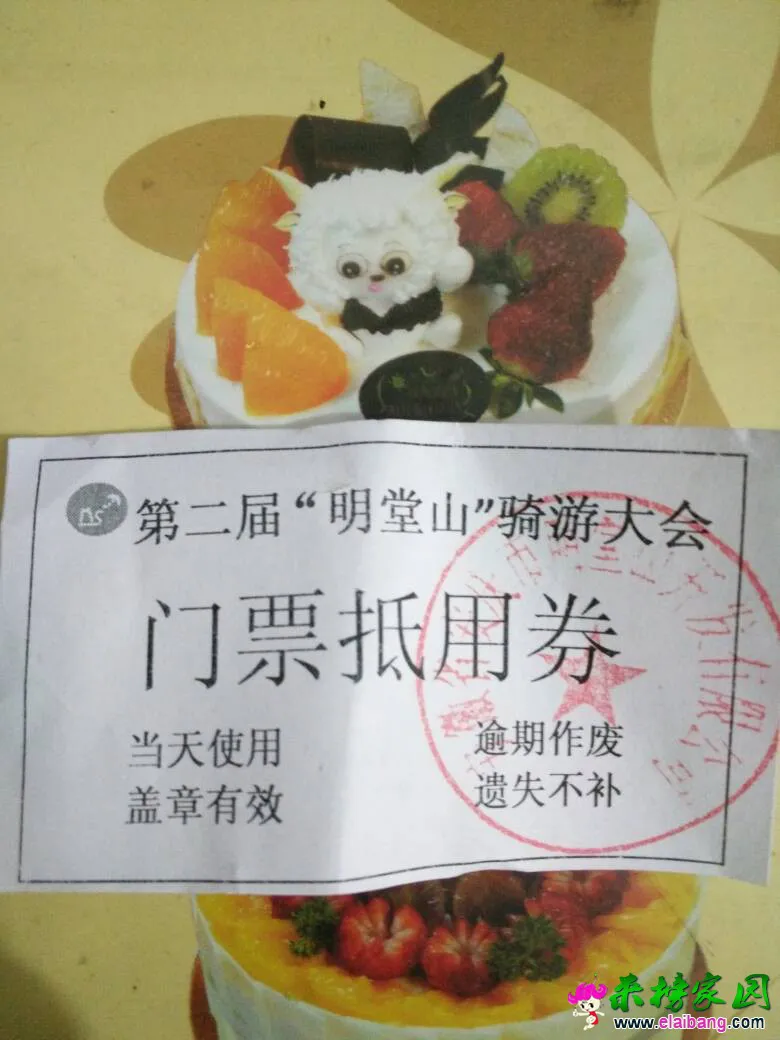 第二届“明堂山”骑游大会
门票抵用券
当天使用
逾期作废
盖章有效
遗失不补
来榜家园
www.elaibang.com